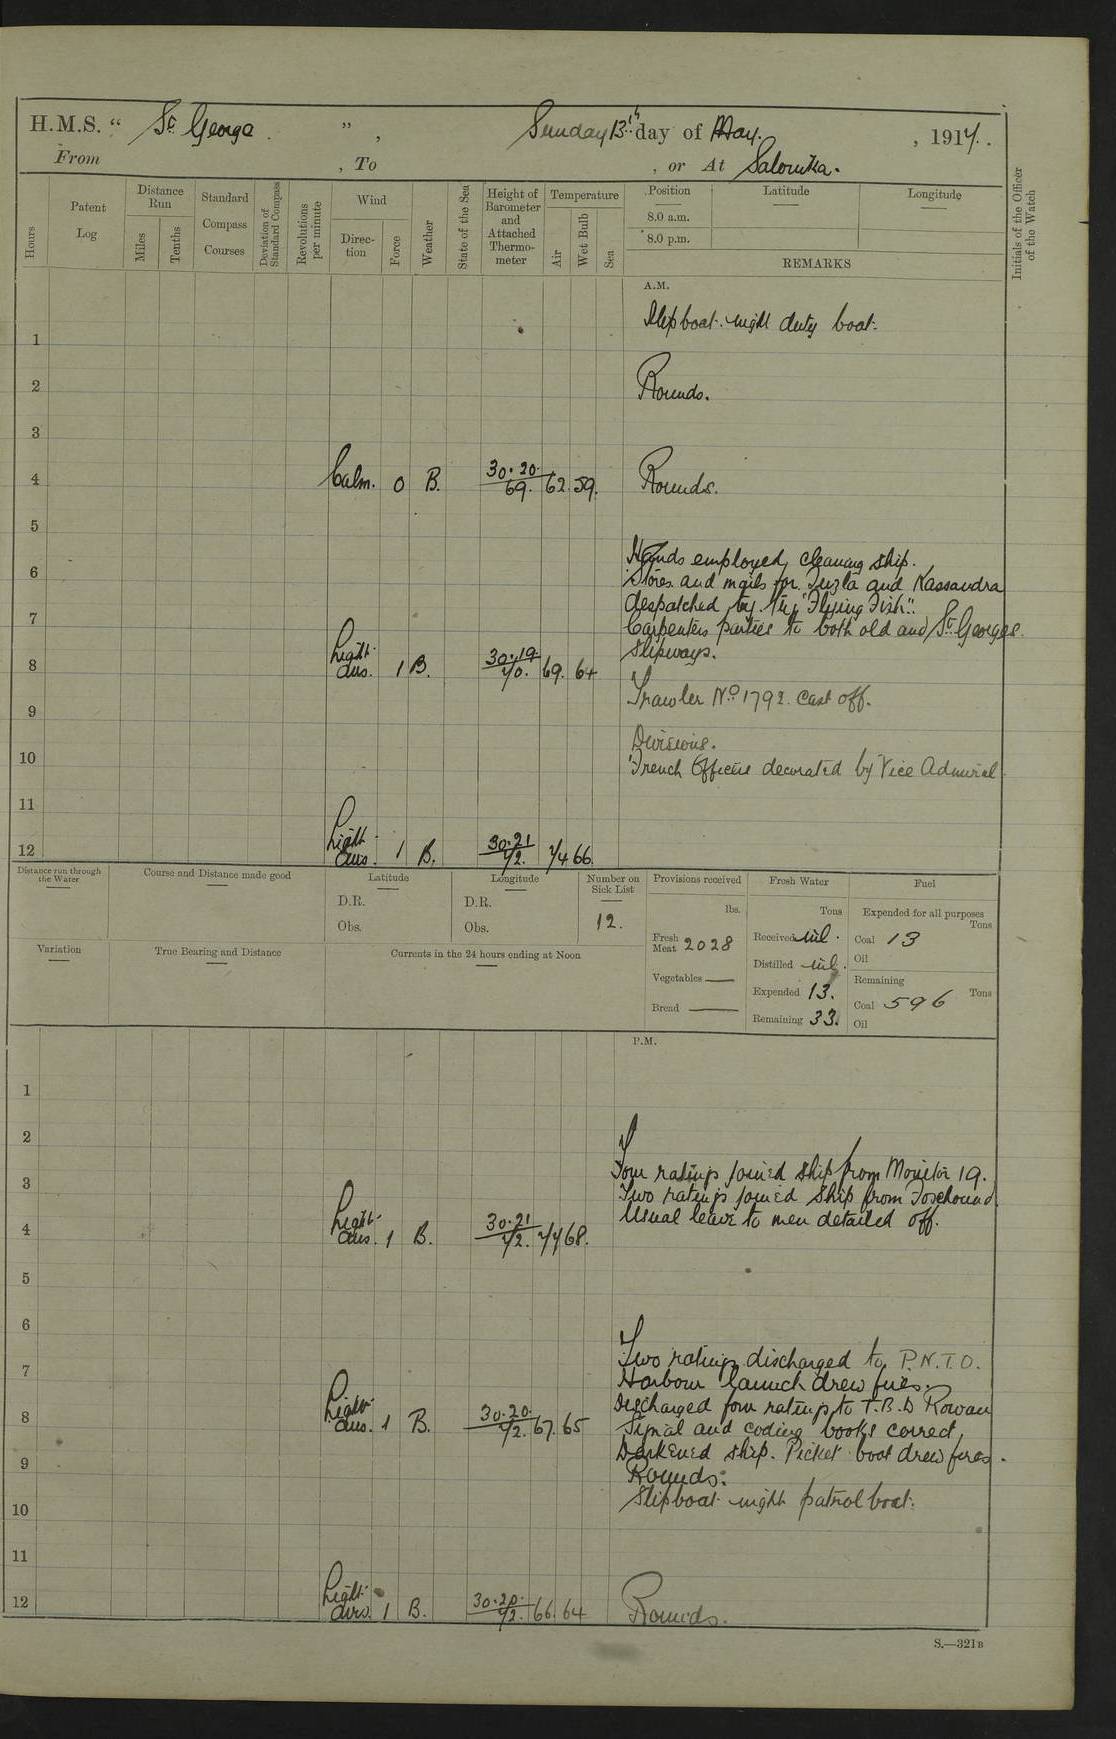 H.M.S. “ St George ” , Sunday 13th day of May. , 1917.
From , To , or At Salonika.
Hours
Patent Log
Distance Run
Miles
Tenths
Standard Compass Courses
Deviation of Standard Compass
Revolutions per minute
Wind
Direction
Force
Weather
State of the Sea
Height of Barometer and Attached Thermometer
Temperature
Air
Wet Bulb
Sea
Position Latitude Longitude
8.0 a.m.
8.0 p.m.
REMARKS
Initials of the Officer of the Watch
A.M.
Slipboat night duty boat.
1
2 Rounds.
3
4 Calm. 0 B. 30.20 69. 62. 59. Rounds.
5
Hands employed cleaning ship.
6 Stores and mails for Tuzla and Kassandra
despatched by "Flying Fish".
7 Carpenters parties to both old and St Georges
slipways.
8 Light airs. 1 B. 30.19 70. 69. 64
Trawler No 1792 cast off.
9
Divisions.
10 French Officers decorated by Vice Admiral
11
12 Light airs. 1 B. 30.21 72. 74 66.
Distance run through the Water
Course and Distance made good
Latitude
D.R.
Obs.
Longitude
D.R.
Obs.
Number on Sick List
12.
Provisions received
lbs.
Fresh Meat 2028
Vegetables —
Bread —
Fresh Water
Tons
Received nil.
Distilled nil.
Expended 13.
Remaining 33.
Fuel
Expended for all purposes
Tons
Coal 13
Oil
Remaining
Tons
Coal 596
Oil
Variation
True Bearing and Distance
Currents in the 24 hours ending at Noon
P.M.
1
2
Four ratings joined ship from Monitor 19.
3 Two ratings joined ship from Foxhound
Usual leave to men detailed off.
4 Light airs. 1 B. 30.21 72. 77 68.
5
6
Two ratings discharged to P.N.T.O.
7 Harbour launch drew fires.
Discharged four ratings to T.B.D Rowan
8 Light airs. 1 B. 30.20. 72. 67. 65 Signal and coding books correct.
Darkened ship. Picket boat drew fires.
9 Rounds.
Slipboat night patrol boat.
10
11
12 Light airs. 1 B. 30.20. 72. 66. 64 Rounds.
S.—321B